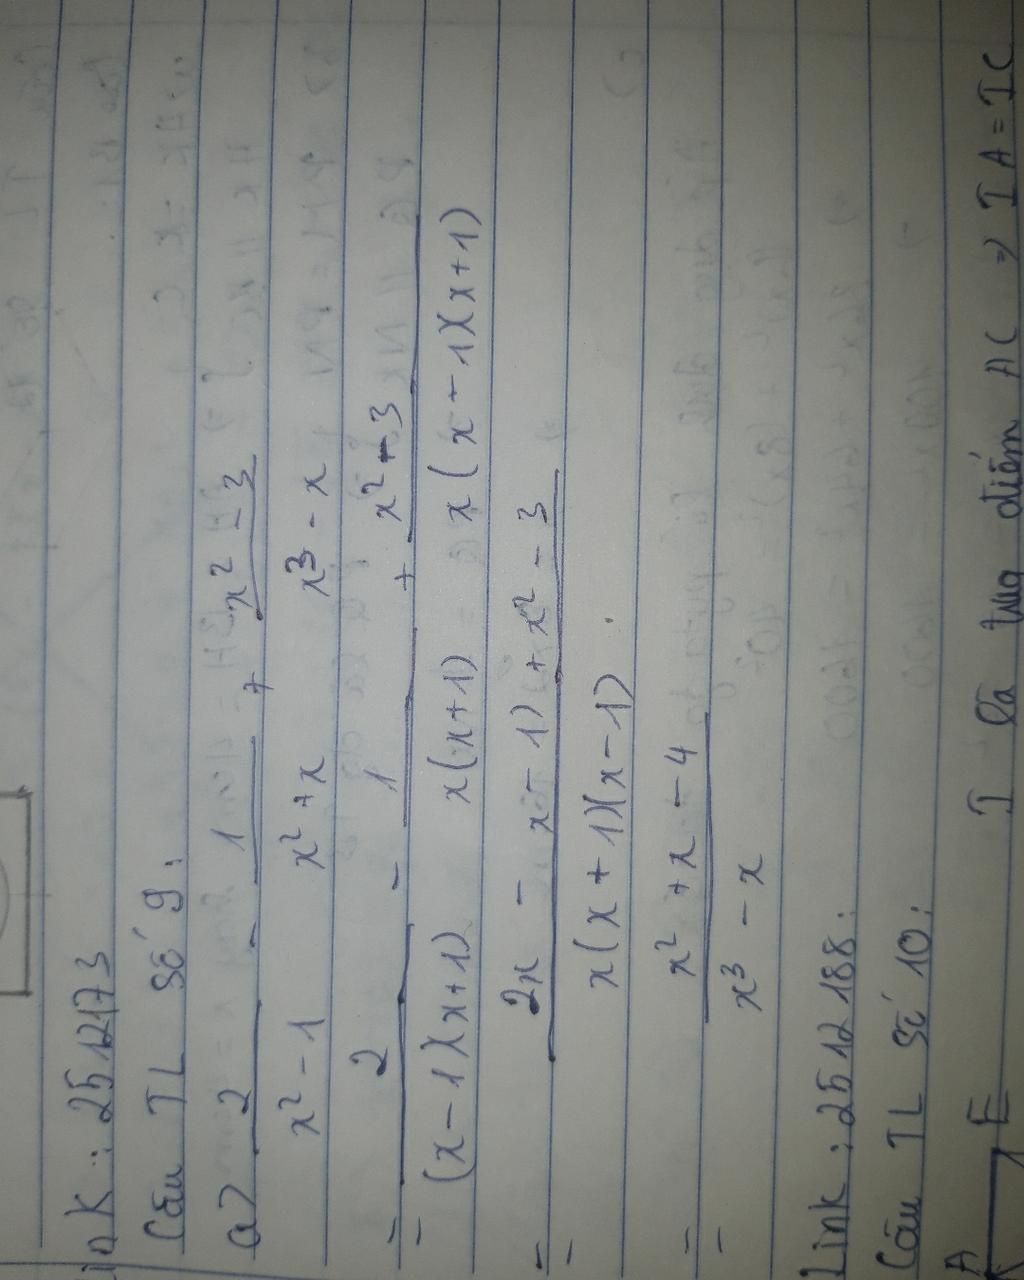 K: 2512173
Câu TL số 9:
a) 2/(x² - 1) - 1/(x² + x) + (x² - 3)/(x³ - x)
= 2/((x - 1)(x + 1)) - 1/(x(x + 1)) + (x² - 3)/(x(x - 1)(x + 1))
= (2x - x - 1) + x² - 3)/(x(x + 1)(x - 1))
= (x² + x - 4)/(x³ - x)
Link: 2512188:
Câu TL số 10:
A E I là trg điểm AC => IA = IC